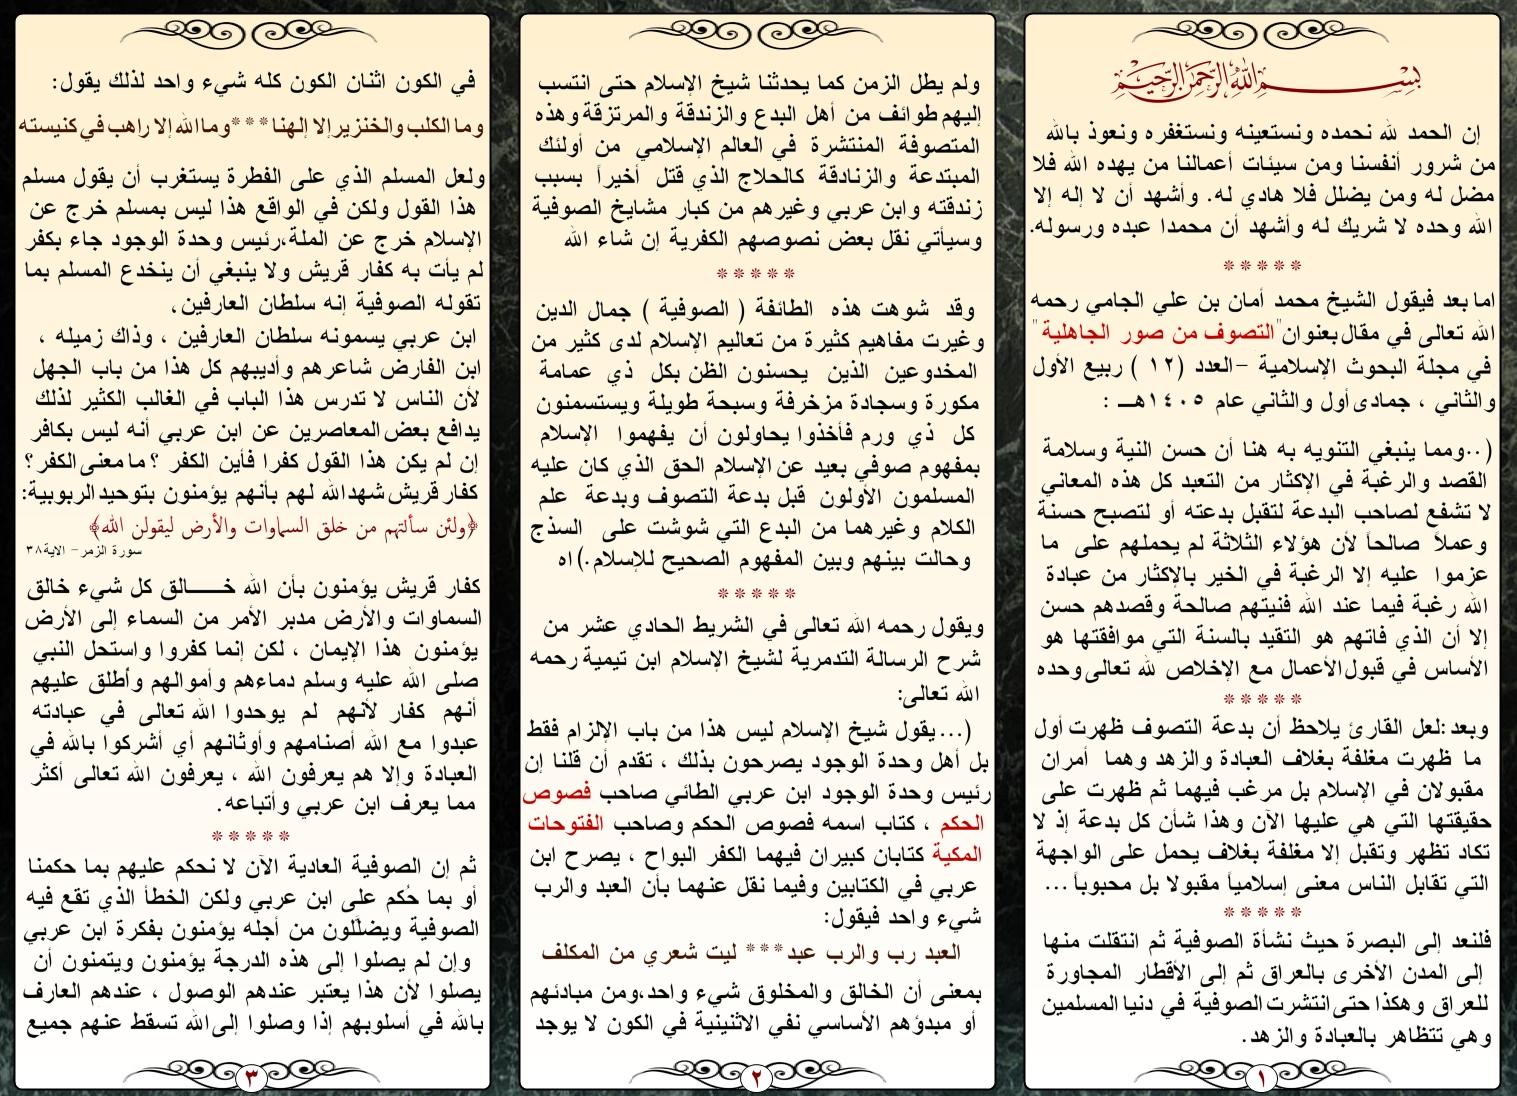 بسم الله الرحمن الرحيم
إن الحمد لله نحمده ونستعينه ونستغفره ونعوذ بالله
من شرور أنفسنا ومن سيئات أعمالنا من يهده الله فلا
مضل له ومن يضلل فلا هادي له. وأشهد أن لا إله إلا
الله وحده لا شريك له وأشهد أن محمدا عبده ورسوله.
*****
اما بعد فيقول الشيخ محمد أمان بن علي الجامي رحمه
الله تعالى في مقال بعنوان "التصوف من صور الجاهلية"
في مجلة البحوث الإسلامية –العدد (١٢ ) ربيع الأول
والثاني ، جمادى أول والثاني عام ١٤٠٥هـ :
(..ومما ينبغي التنويه به هنا أن حسن النية وسلامة
القصد والرغبة في الإكثار من التعبد كل هذه المعاني
لا تشفع لصاحب البدعة لتقبل بدعته أو لتصبح حسنة
وعملاً صالحاً لأن هؤلاء الثلاثة لم يحملهم على ما
عزموا عليه إلا الرغبة في الخير بالإكثار من عبادة
الله رغبة فيما عند الله فنيتهم صالحة وقصدهم حسن
إلا أن الذي فاتهم هو التقيد بالسنة التي موافقتها هو
الأساس في قبول الأعمال مع الإخلاص لله تعالى وحده
*****
وبعد:لعل القارئ يلاحظ أن بدعة التصوف ظهرت أول
ما ظهرت مغلفة بغلاف العبادة والزهد وهما أمران
مقبولان في الإسلام بل مرغب فيهما ثم ظهرت على
حقيقتها التي هي عليها الآن وهذا شأن كل بدعة إذ لا
تكاد تظهر وتقبل إلا مغلفة بغلاف يحمل على الواجهة
التي تقابل الناس معنى إسلامياً مقبولا بل محبوباً ...
*****
فلنعد إلى البصرة حيث نشأة الصوفية ثم انتقلت منها
إلى المدن الأخرى بالعراق ثم إلى الأقطار المجاورة
للعراق وهكذا حتى انتشرت الصوفية في دنيا المسلمين
وهي تتظاهر بالعبادة والزهد.
١
ولم يطل الزمن كما يحدثنا شيخ الإسلام حتى انتسب
إليهم طوائف من أهل البدع والزندقة والمرتزقة وهذه
المتصوفة المنتشرة في العالم الإسلامي من أولئك
المبتدعة والزنادقة كالحلاج الذي قتل أخيراً بسبب
زندقته وابن عربي وغيرهم من كبار مشايخ الصوفية
وسيأتي نقل بعض نصوصهم الكفرية إن شاء الله
*****
وقد شوهت هذه الطائفة ( الصوفية ) جمال الدين
وغيرت مفاهيم كثيرة من تعاليم الإسلام لدى كثير من
المخدوعين الذين يحسنون الظن بكل ذي عمامة
مكورة وسجادة مزخرفة وسبحة طويلة ويستسمنون
كل ذي ورم فأخذوا يحاولون أن يفهموا الإسلام
بمفهوم صوفي بعيد عن الإسلام الحق الذي كان عليه
المسلمون الأولون قبل بدعة التصوف وبدعة علم
الكلام وغيرهما من البدع التي شوشت على السذج
وحالت بينهم وبين المفهوم الصحيح للإسلام.)اه
*****
ويقول رحمه الله تعالى في الشريط الحادي عشر من
شرح الرسالة التدمرية لشيخ الإسلام ابن تيمية رحمه
الله تعالى:
(...يقول شيخ الإسلام ليس هذا من باب الإلزام فقط
بل أهل وحدة الوجود يصرحون بذلك ، تقدم أن قلنا إن
رئيس وحدة الوجود ابن عربي الطائي صاحب فصوص
الحكم ، كتاب اسمه فصوص الحكم وصاحب الفتوحات
المكية كتابان كبيران فيهما الكفر البواح ، يصرح ابن
عربي في الكتابين وفيما نقل عنهما بأن العبد والرب
شيء واحد فيقول:
العبد رب والرب عبد*** ليت شعري من المكلف
بمعنى أن الخالق والمخلوق شيء واحد،ومن مبادئهم
أو مبدؤهم الأساسي نفي الاثنينية في الكون لا يوجد
٢
في الكون اثنان الكون كله شيء واحد لذلك يقول:
وما الكلب والخنزير إلا إلهنا***وما الله إلا راهب في كنيسته
ولعل المسلم الذي على الفطرة يستغرب أن يقول مسلم
هذا القول ولكن في الواقع هذا ليس بمسلم خرج عن
الإسلام خرج عن الملة،رئيس وحدة الوجود جاء بكفر
لم يأت به كفار قريش ولا ينبغي أن ينخدع المسلم بما
تقوله الصوفية إنه سلطان العارفين،
ابن عربي يسمونه سلطان العارفين ، وذاك زميله ،
ابن الفارض شاعرهم وأديبهم كل هذا من باب الجهل
لأن الناس لا تدرس هذا الباب في الغالب الكثير لذلك
يدافع بعض المعاصرين عن ابن عربي أنه ليس بكافر
إن لم يكن هذا القول كفرا فأين الكفر ؟ ما معنى الكفر؟
كفار قريش شهد الله لهم بأنهم يؤمنون بتوحيد الربوبية:
﴿ولئن سألتهم من خلق السماوات والأرض ليقولن الله﴾
سورة الزمر– الاية٣٨
كفار قريش يؤمنون بأن الله خـــالق كل شيء خالق
السماوات والأرض مدبر الأمر من السماء إلى الأرض
يؤمنون هذا الإيمان ، لكن إنما كفروا واستحل النبي
صلى الله عليه وسلم دماءهم وأموالهم وأطلق عليهم
أنهم كفار لأنهم لم يوحدوا الله تعالى في عبادته
عبدوا مع الله أصنامهم وأوثانهم أي أشركوا بالله في
العبادة وإلا هم يعرفون الله ، يعرفون الله تعالى أكثر
مما يعرف ابن عربي وأتباعه.
*****
ثم إن الصوفية العادية الآن لا نحكم عليهم بما حكمنا
أو بما حُكم على ابن عربي ولكن الخطأ الذي تقع فيه
الصوفية ويضلَّلون من أجله يؤمنون بفكرة ابن عربي
وإن لم يصلوا إلى هذه الدرجة يؤمنون ويتمنون أن
يصلوا لأن هذا يعتبر عندهم الوصول ، عندهم العارف
بالله في أسلوبهم إذا وصلوا إلى الله تسقط عنهم جميع
٣